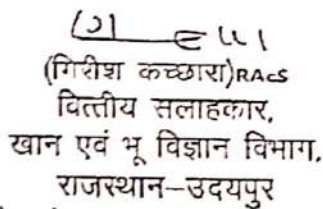 (गिरीश कच्छारा)RAcS
वित्तीय सलाहकार,
खान एवं भू विज्ञान विभाग,
राजस्थान–उदयपुर